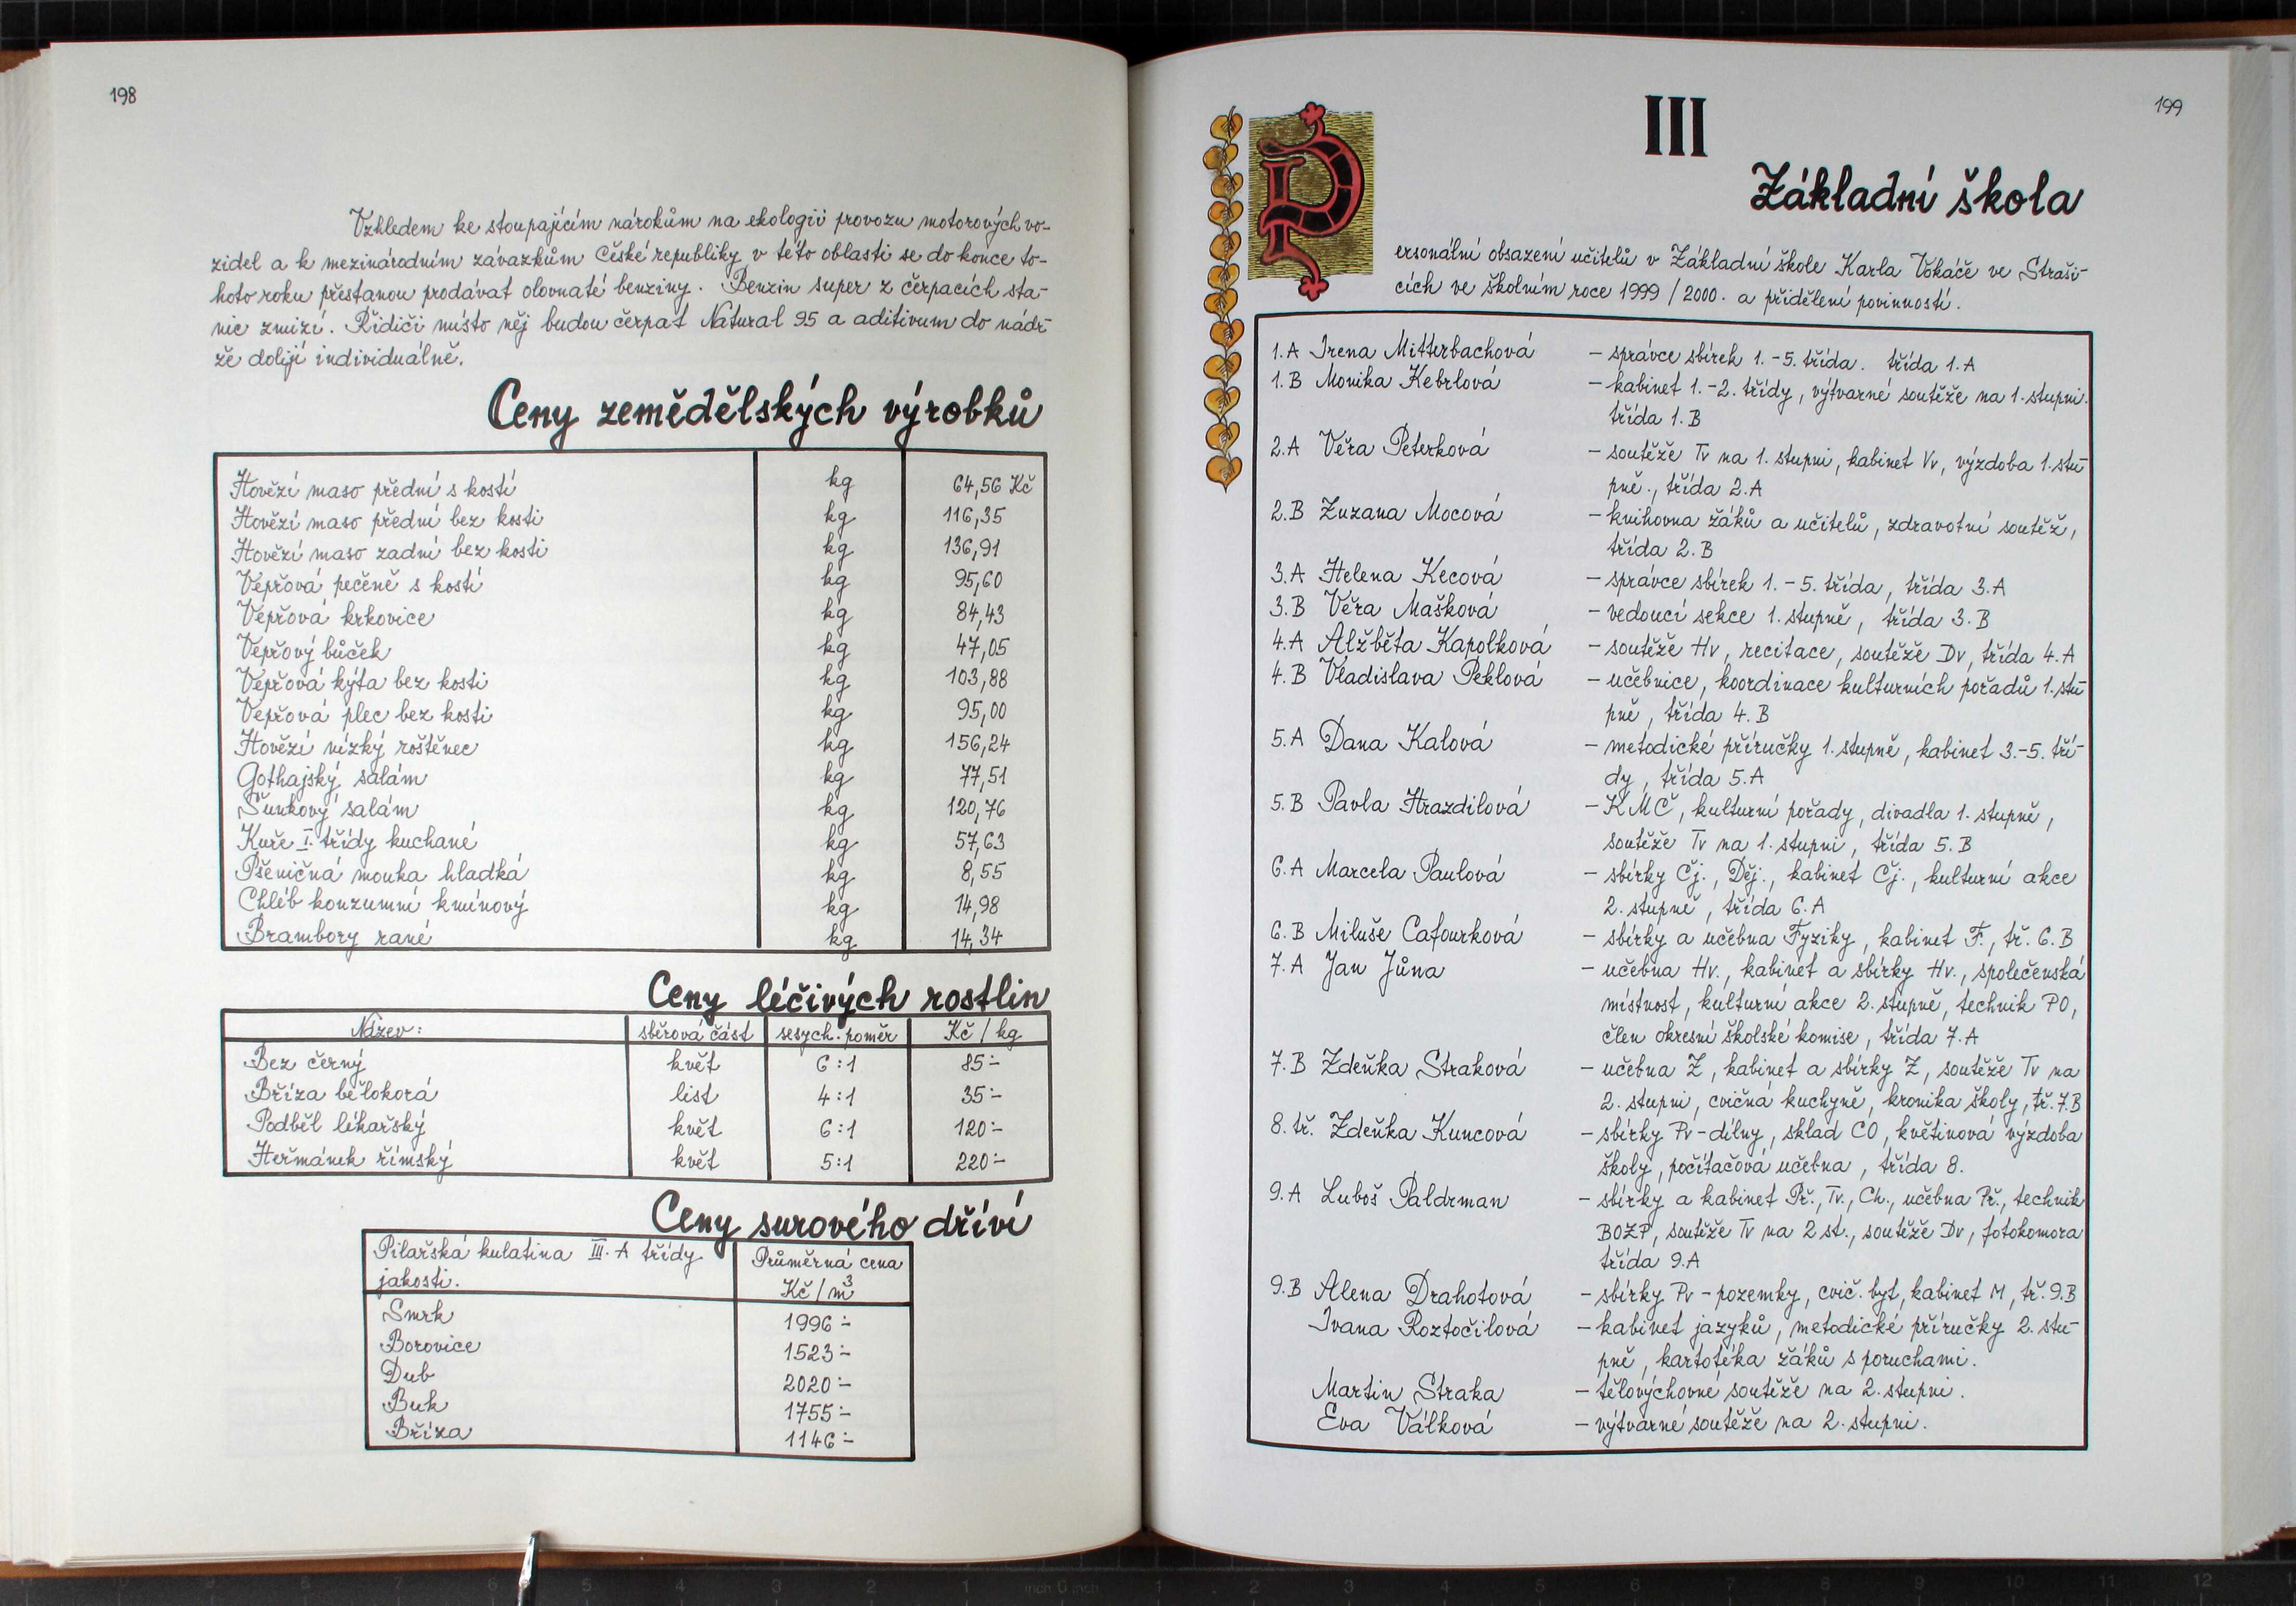 198
Vzhledem ke stoupajícím nárokům na ekologii provozu motorových vo-
zidel a k mezinárodním závazkům České republiky v této oblasti se do konce to-
hoto roku přestanou prodávat olovnaté benziny. Benzin super z čerpacích sta-
nic zmizí. Řidiči místo něj budou čerpat Natural 95 a aditivum do nádr-
že dolijí individuálně.
Ceny zemědělských výrobků
Hovězí maso přední s kostí kg 64,56 Kč
Hovězí maso přední bez kosti kg 116,35
Hovězí maso zadní bez kosti kg 136,91
Vepřová pečeně s kostí kg 95,60
Vepřová krkovice kg 84,43
Vepřový bůček kg 47,05
Vepřová kýta bez kosti kg 103,88
Vepřová plec bez kosti kg 95,00
Hovězí nízký roštěnec kg 156,24
Gothajský salám kg 77,51
Šunkový salám kg 120,76
Kuře I. třídy kuchané kg 57,63
Pšeničná mouka hladká kg 8,55
Chléb konzumní kmínový kg 14,98
Brambory rané kg 14,34
Ceny léčivých rostlin
Název: sběrová část sesych. poměr Kč / kg
Bez černý květ 6:1 85:-
Bříza bělokorá list 4:1 35:-
Podběl lékařský květ 6:1 120:-
Heřmánek římský květ 5:1 220:-
Ceny surového dříví
Pilařská kulatina III. A třídy Průměrná cena
jakosti. Kč / m³
Smrk 1996:-
Borovice 1523:-
Dub 2020:-
Buk 1755:-
Bříza 1146:-
199
III
Základní škola
Personální obsazení učitelů v Základní škole Karla Vokáče ve Straši-
cích ve školním roce 1999 / 2000. a přidělení povinností.
1.A Irena Mitterbachová – správce sbírek 1.-5. třída. třída 1.A
1.B Monika Kebrlová – kabinet 1.-2. třídy, výtvarné soutěže na 1. stupni.
třída 1.B
2.A Věra Peterková – soutěže Tv na 1. stupni, kabinet Vv, výzdoba 1. stu-
pně., třída 2.A
2.B Zuzana Mocová – knihovna žáků a učitelů, zdravotní soutěž,
třída 2.B
3.A Helena Kecová – správce sbírek 1.-5. třída, třída 3.A
3.B Věra Mašková – vedoucí sekce 1. stupně, třída 3.B
4.A Alžběta Kapolková – soutěže Hv, recitace, soutěže Dv, třída 4.A
4.B Vladislava Peklová – učebnice, koordinace kulturních pořadů 1. stu-
pně, třída 4.B
5.A Dana Kalová – metodické příručky 1. stupně, kabinet 3.-5. tří-
dy, třída 5.A
5.B Pavla Hrazdilová – KMČ, kulturní pořady, divadla 1. stupně,
soutěže Tv na 1. stupni, třída 5.B
6.A Marcela Paulová – sbírky Čj., Děj., kabinet Čj., kulturní akce
2. stupně, třída 6.A
6.B Miluše Cafourková – sbírky a učebna Fyziky, kabinet F., tř. 6.B
7.A Jan Jůna – učebna Hv., kabinet a sbírky Hv., společenská
místnost, kulturní akce 2. stupně, technik PO,
člen okresní školské komise, třída 7.A
7.B Zdeňka Straková – učebna Z, kabinet a sbírky Z, soutěže Tv na
2. stupni, cvičná kuchyně, kronika školy, tř. 7.B
8. tř. Zdeňka Kuncová – sbírky Pv-dílny, sklad CO, květinová výzdoba
školy, počítačová učebna, třída 8.
9.A Luboš Paldrman – sbírky a kabinet Př., Tv., Ch., učebna Př., technik
BOZP, soutěže Tv na 2 st., soutěže Dv, fotokomora
třída 9.A
9.B Alena Drahotová – sbírky Pv - pozemky, cvič. byt, kabinet M, tř. 9.B
Ivana Roztočilová – kabinet jazyků, metodické příručky 2. stu-
pně, kartotéka žáků s poruchami.
Martin Straka – tělovýchovné soutěže na 2. stupni.
Eva Válková – výtvarné soutěže na 2. stupni.